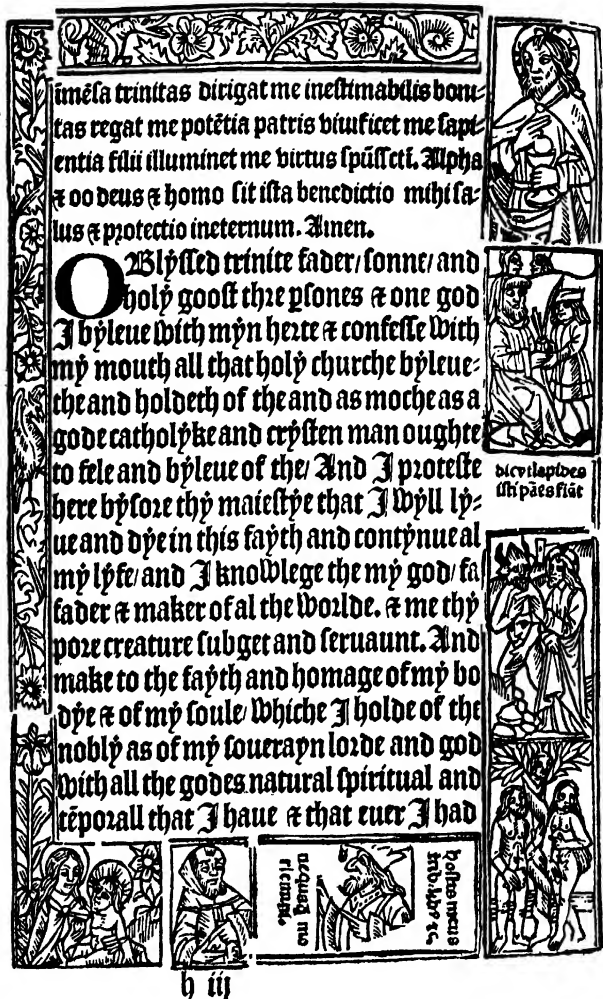 īmēsa trinitas dirigat me inestimabilis boni-
tas regat me potētia patris viuificet me sapi-
entia filii illuminet me virtus spūssctī. Alpha
⁊ oo deus ⁊ homo sit ista benedictio mihi sa-
lus ⁊ protectio ineternum. Amen.
O Blyssed trinite fader/ sonne/ and
holy goost thre ꝑsones ⁊ one god
I byleue with myn herte ⁊ confesse with
my mouth all that holy churche byleue-
the and holdeth of the and as moche as a
gode catholyke and crysten man oughte
to fele and byleue of the/ And I proteste
here byfore thy maiestye that I wyll ly-
ue and dye in this fayth and contynue al
my lyfe/ and I knowlege the my god/ fa
fader ⁊ maker of al the worlde. ⁊ me thy
pore creature subget and seruaunt. And
make to the fayth and homage of my bo
dye ⁊ of my soule/ whiche I holde of the
nobly as of my souerayn lorde and god
with all the godes natural spiritual and
tēporall that I haue ⁊ that euer I had
dic vt lapides
isti pāes fiāt
h iij